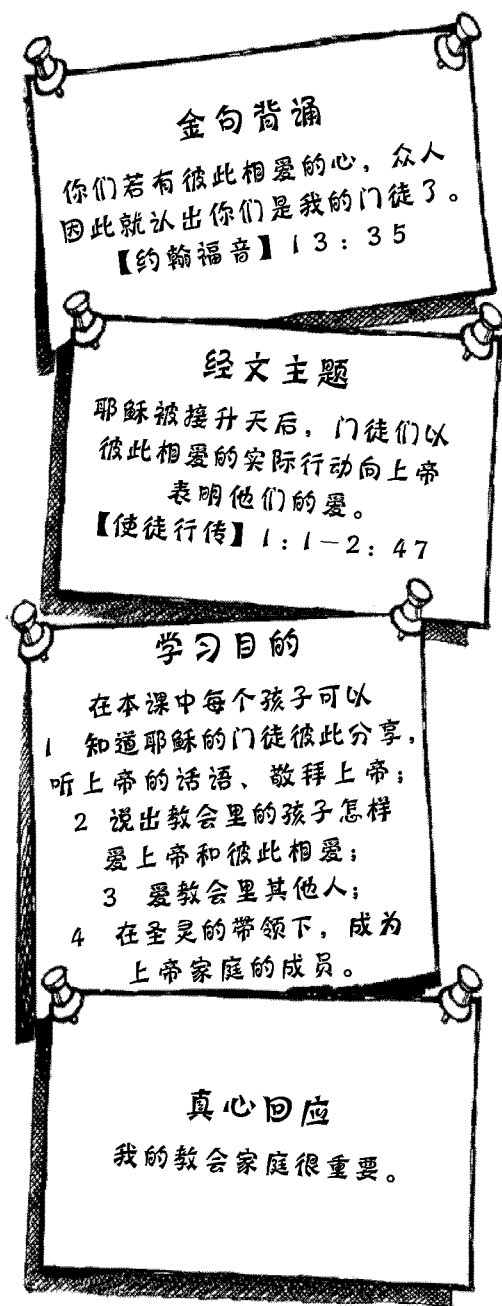 金句背诵
你们若有彼此相爱的心，众人
因此就认出你们是我的门徒了。
【约翰福音】13：35
经文主题
耶稣被接升天后，门徒们以
彼此相爱的实际行动向上帝
表明他们的爱。
【使徒行传】1：1－2：47
学习目的
在本课中每个孩子可以
1 知道耶稣的门徒彼此分享，
听上帝的话语、敬拜上帝；
2 说出教会里的孩子怎样
爱上帝和彼此相爱；
3 爱教会里其他人；
4 在圣灵的带领下，成为
上帝家庭的成员。
真心回应
我的教会家庭很重要。